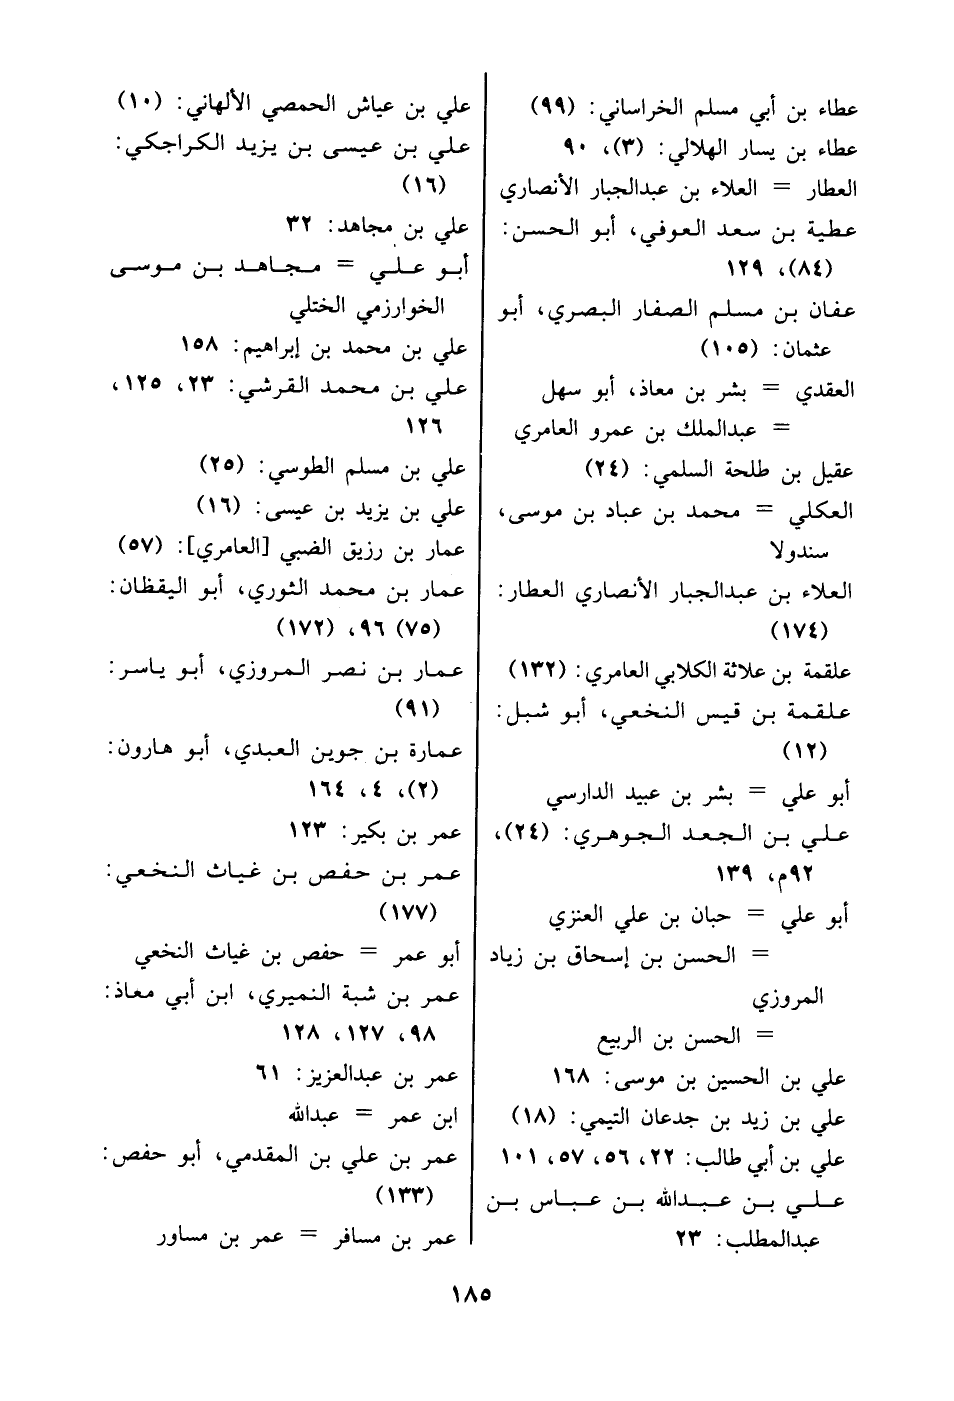 عطاء بن أبي مسلم الخراساني: (٩٩)
عطاء بن يسار الهلالي: (٣)، ٩٠
العطار = العلاء بن عبدالجبار الأنصاري
عطية بن سعد العوفي، أبو الحسن:
(٨٤)، ١٢٩
عفان بن مسلم الصفار البصري، أبو
عثمان: (١٠٥)
العقدي = بشر بن معاذ، أبو سهل
= عبدالملك بن عمرو العامري
عقيل بن طلحة السلمي: (٢٤)
العكلي = محمد بن عباد بن موسى،
سندولا
العلاء بن عبدالجبار الأنصاري العطار:
(١٧٤)
علقمة بن علاثة الكلابي العامري: (١٣٢)
علقمة بن قيس النخعي، أبو شبل:
(١٢)
أبو علي = بشر بن عبيد الدارسي
علي بن الجعد الجوهري: (٢٤)،
٩٢م، ١٣٩
أبو علي = حبان بن علي العنزي
= الحسن بن إسحاق بن زياد
المروزي
= الحسن بن الربيع
علي بن الحسين بن موسى: ١٦٨
علي بن زيد بن جدعان التيمي: (١٨)
علي بن أبي طالب: ٢٢، ٥٦، ٥٧، ١٠١
علي بن عبدالله بن عباس بن
عبدالمطلب: ٢٣
علي بن عياش الحمصي الألهاني: (١٠)
علي بن عيسى بن يزيد الكراجكي:
(١٦)
علي بن مجاهد: ٣٢
أبو علي = مجاهد بن موسى
الخوارزمي الختلي
علي بن محمد بن إبراهيم: ١٥٨
علي بن محمد القرشي: ٢٣، ١٢٥،
١٢٦
علي بن مسلم الطوسي: (٢٥)
علي بن يزيد بن عيسى: (١٦)
عمار بن رزيق الضبي [العامري]: (٥٧)
عمار بن محمد الثوري، أبو اليقظان:
(٧٥) ٩٦، (١٧٢)
عمار بن نصر المروزي، أبو ياسر:
(٩١)
عمارة بن جوين العبدي، أبو هارون:
(٢)، ٤، ١٦٤
عمر بن بكير: ١٢٣
عمر بن حفص بن غياث النخعي:
(١٧٧)
أبو عمر = حفص بن غياث النخعي
عمر بن شبة النميري، ابن أبي معاذ:
٩٨، ١٢٧، ١٢٨
عمر بن عبدالعزيز: ٦١
ابن عمر = عبدالله
عمر بن علي بن المقدمي، أبو حفص:
(١٣٣)
عمر بن مسافر = عمر بن مساور
١٨٥